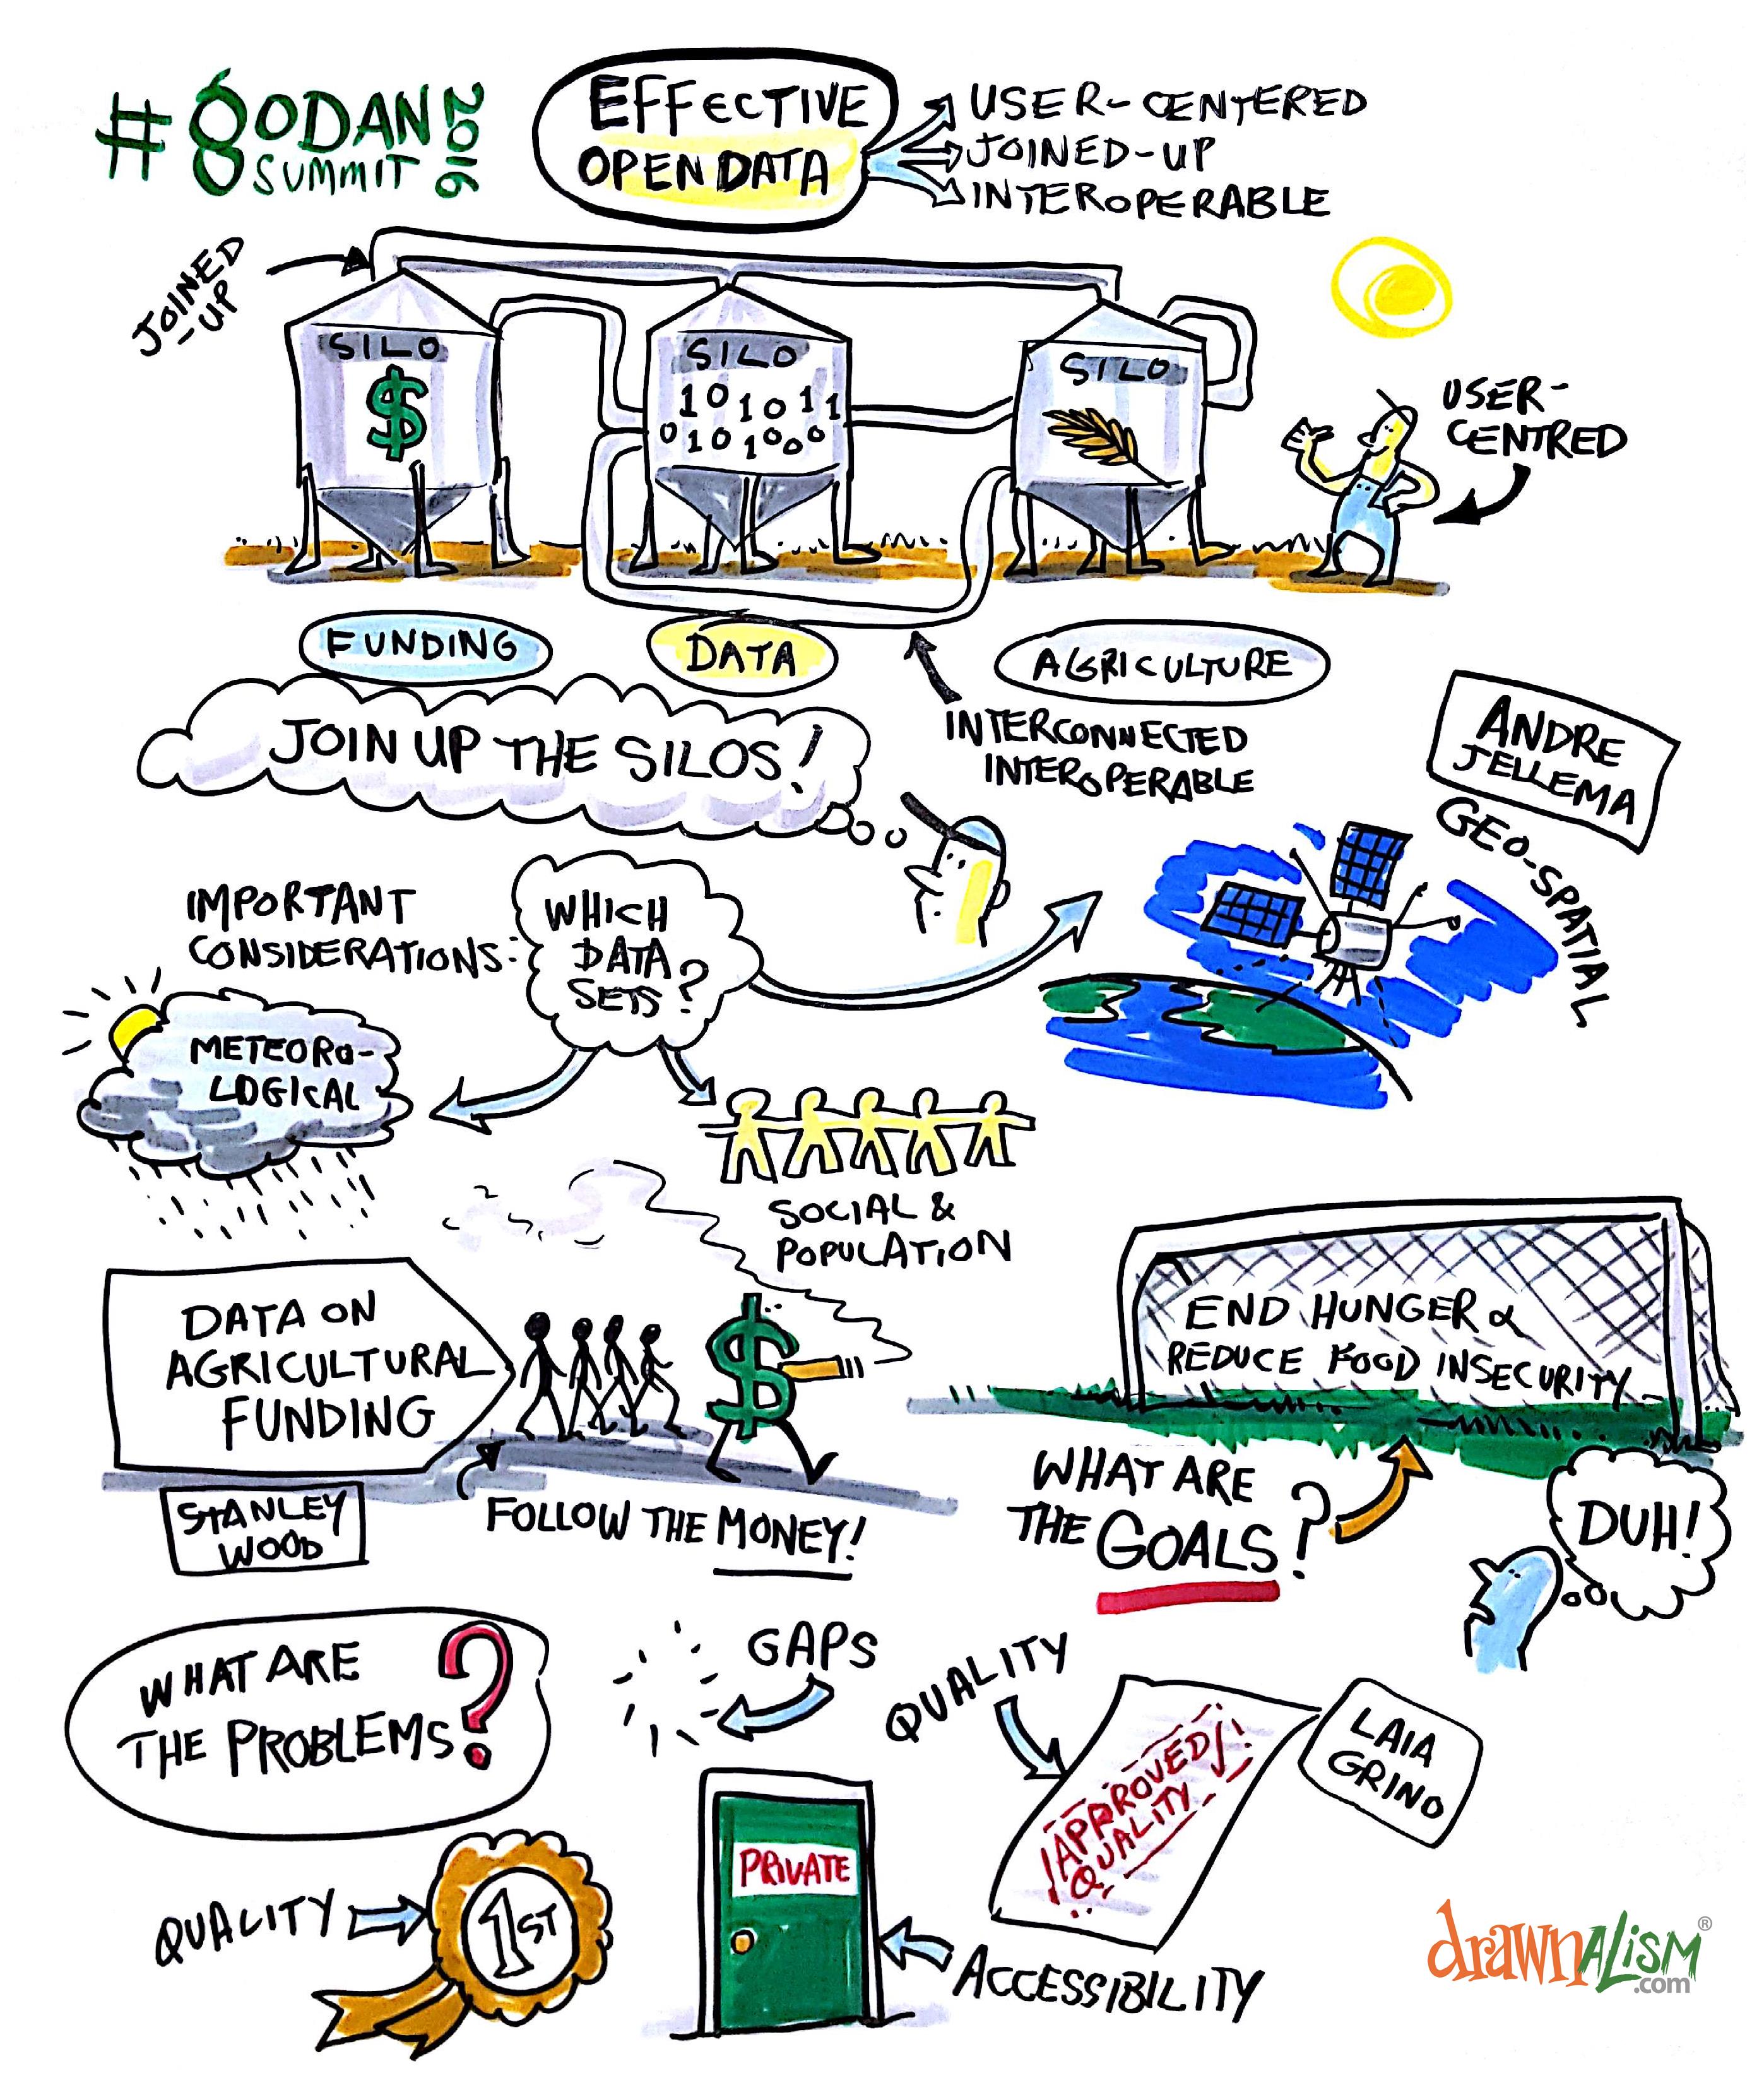 #GODAN
SUMMIT
2016
EFFECTIVE
OPEN DATA
USER-CENTERED
JOINED-UP
INTEROPERABLE
JOINED
-UP
SILO
$
SILO
101011
0101000
SILO
USER-
CENTRED
FUNDING
DATA
AGRICULTURE
INTERCONNECTED
INTEROPERABLE
JOIN UP THE SILOS!
ANDRE
JELLEMA
GEO-SPATIAL
IMPORTANT
CONSIDERATIONS:
WHICH
DATA
SETS?
METEORO-
LOGICAL
SOCIAL &
POPULATION
DATA ON
AGRICULTURAL
FUNDING
$
STANLEY
WOOD
FOLLOW THE MONEY!
END HUNGER &
REDUCE FOOD INSECURITY
WHAT ARE
THE GOALS?
DUH!
WHAT ARE
THE PROBLEMS?
GAPS
QUALITY
APPROVED
QUALITY
LAIA
GRINO
QUALITY
1ST
PRIVATE
ACCESSIBILITY
drawnALiSM®
.com